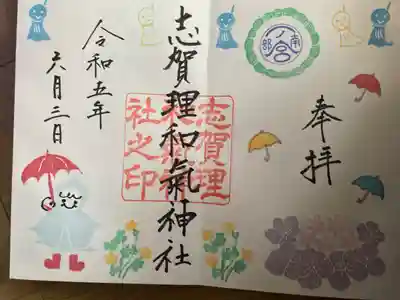 奉拝
志賀理和氣神社
令和五年
六月三日
志賀理
和氣神
社之印
南部
一ノ宮